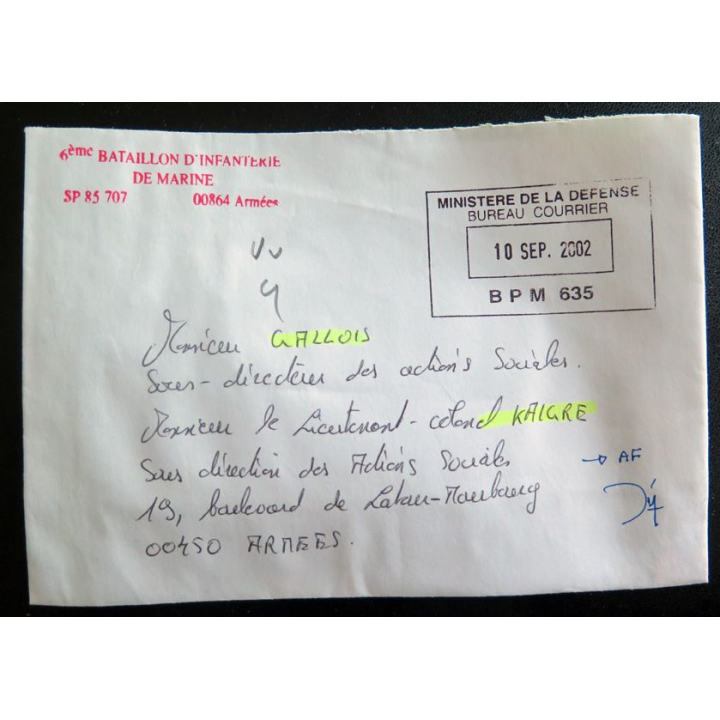 6ème BATAILLON D'INFANTERIE
DE MARINE
SP 85 707 00864 Armées
MINISTERE DE LA DEFENSE
BUREAU COURRIER
10 SEP. 2002
B P M 635
Vu
Monsieur GALLOIS
Sous-directeur des actions Sociales.
Monsieur le Lieutenant-colonel KAIGRE
Sous direction des Actions Sociales
19, boulevard de Latour-Maubourg
00450 ARMEES.
→ AF